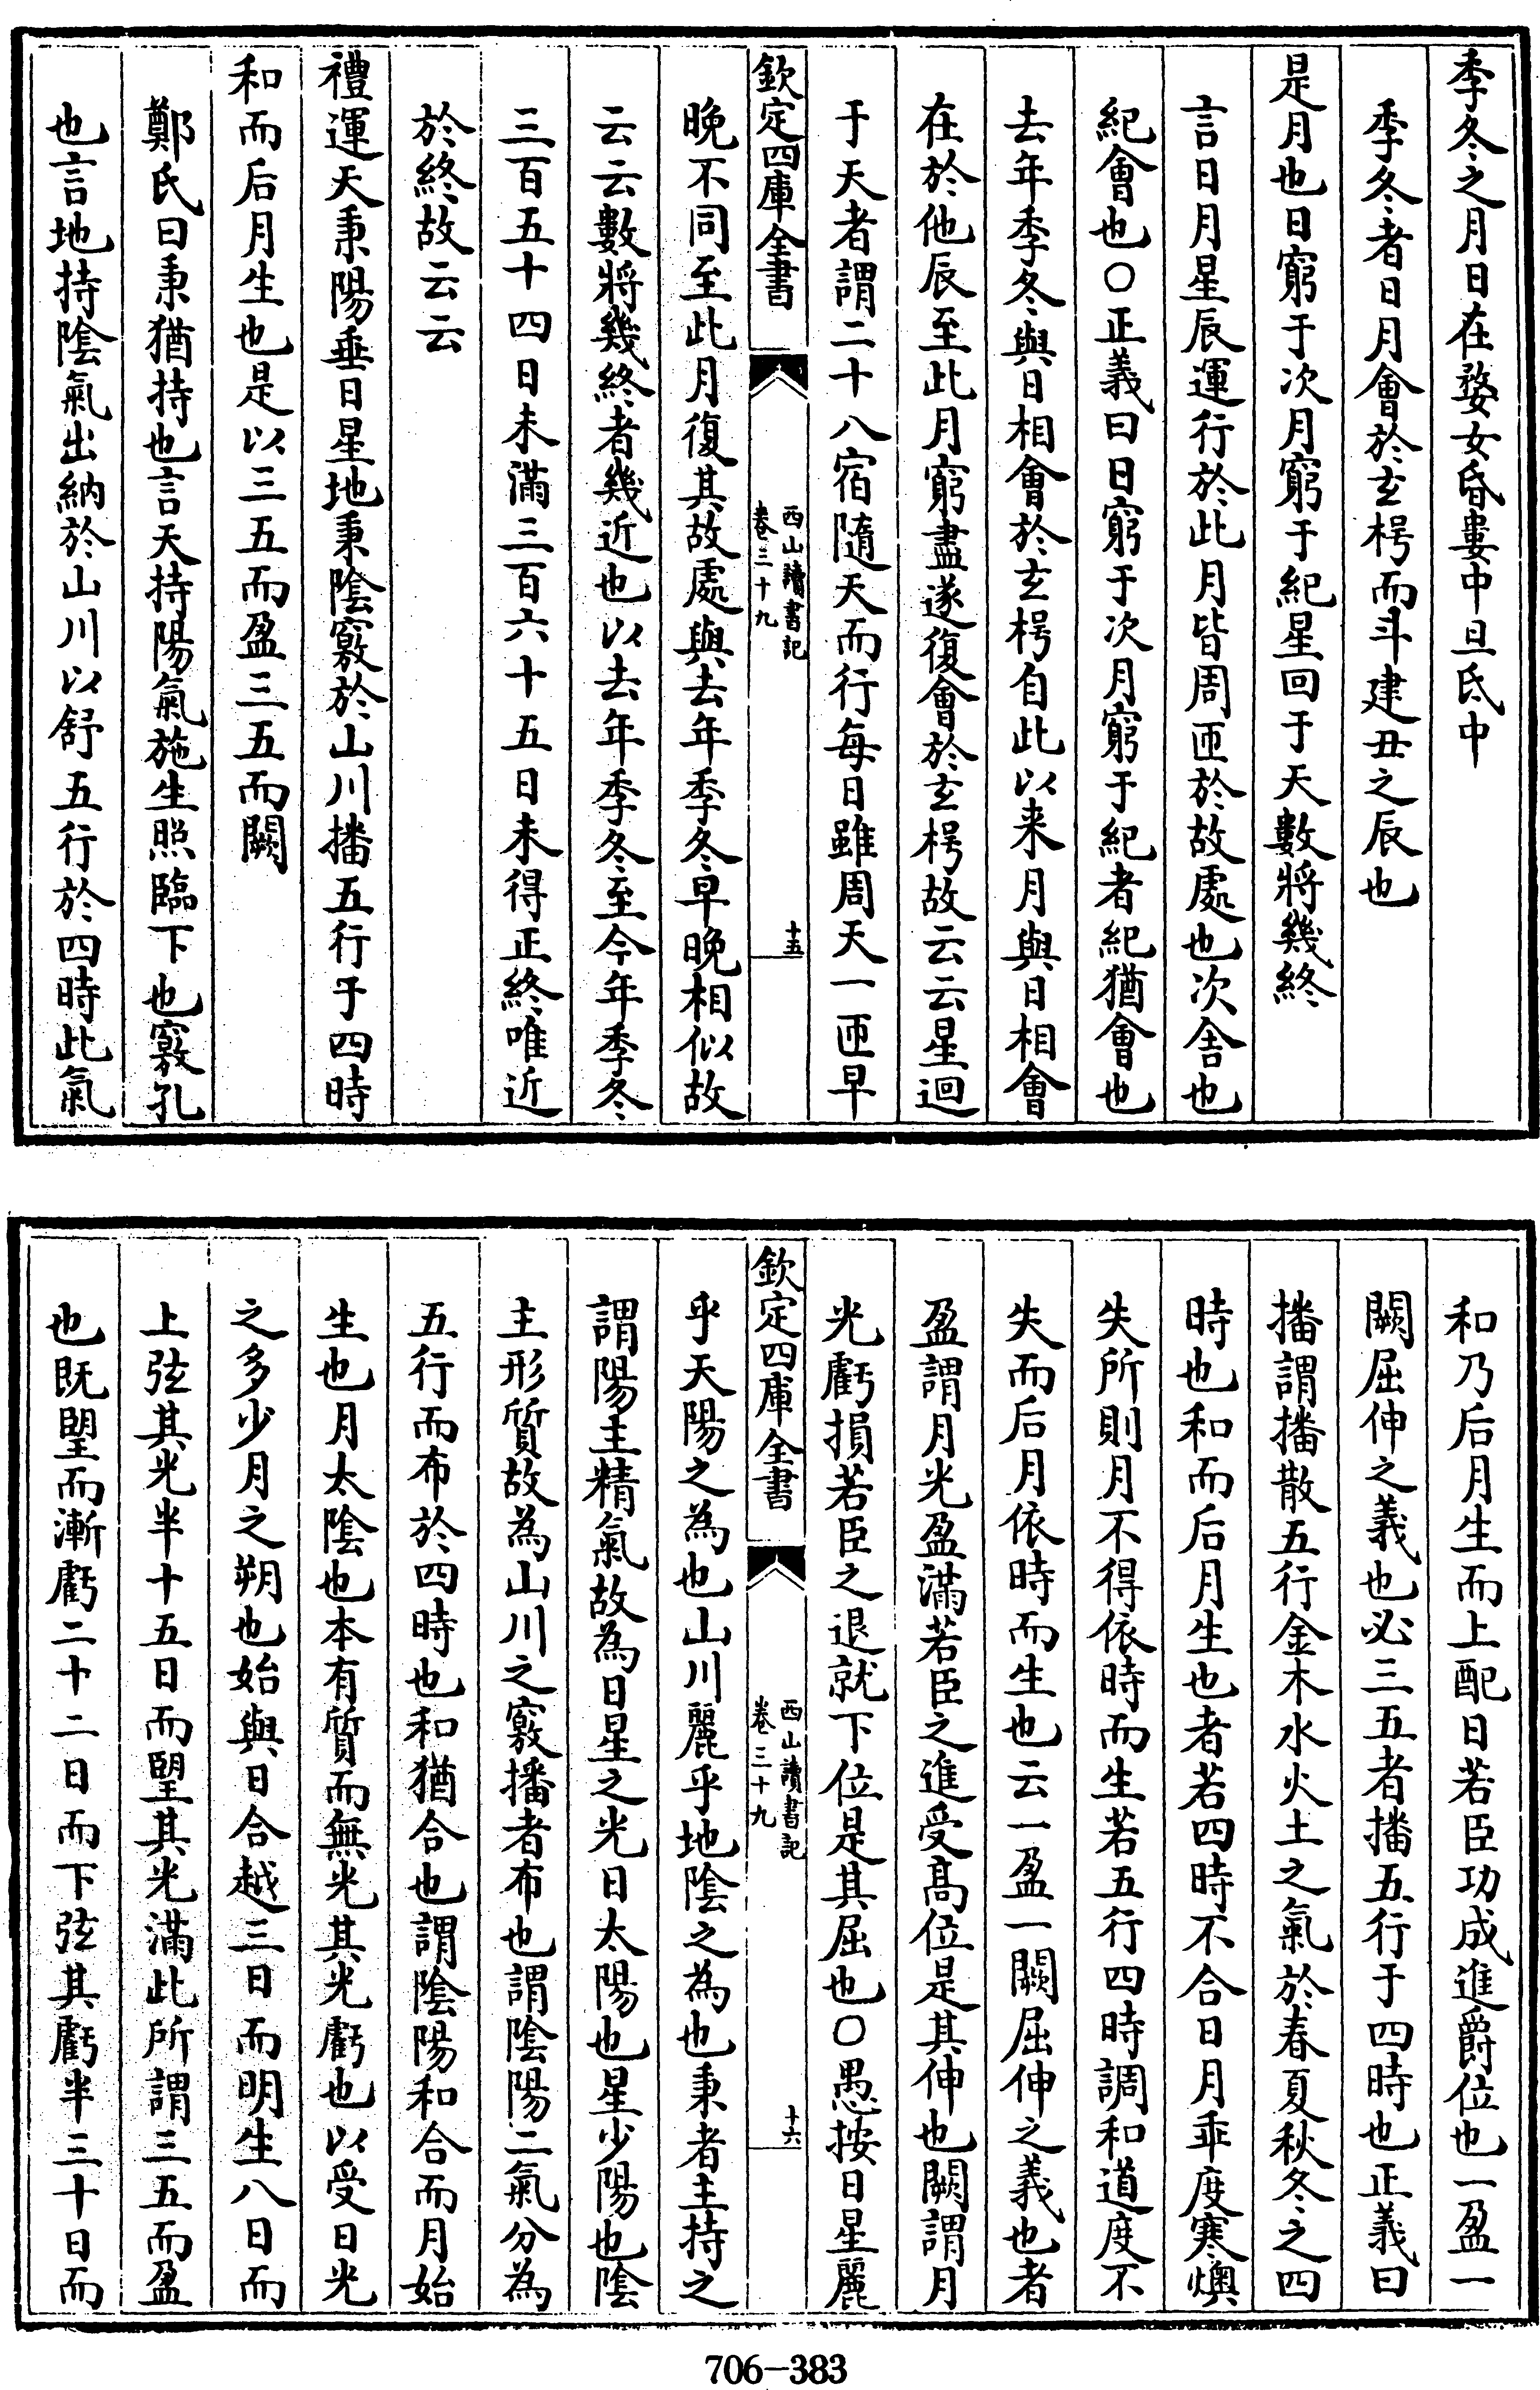 季冬之月日在婺女昏婁中旦氐中
季冬者日月會於玄枵而斗建丑之辰也
是月也日窮于次月窮于紀星回于天數將幾終
言日月星辰運行於此月皆周匝於故處也次舍也
紀會也○正義曰日窮于次月窮于紀者紀猶會也
去年季冬與日相會於玄枵自此以来月與日相會
在於他辰至此月窮盡遂復會於玄枵故云云星迴
于天者謂二十八宿隨天而行每日雖周天一匝早
欽定四庫全書
西山讀書記
卷三十九
十五
晚不同至此月復其故處與去年季冬早晚相似故
云云數將幾終者幾近也以去年季冬至今年季冬
三百五十四日未滿三百六十五日未得正終唯近
於終故云云
禮運天秉陽垂日星地秉陰竅於山川播五行于四時
和而后月生也是以三五而盈三五而闕
鄭氏曰秉猶持也言天持陽氣施生照臨下也竅孔
也言地持陰氣出納於山川以舒五行於四時此氣
和乃后月生而上配日若臣功成進爵位也一盈一
闕屈伸之義也必三五者播五行于四時也正義曰
播謂播散五行金木水火土之氣於春夏秋冬之四
時也和而后月生也者若四時不合日月乖度寒燠
失所則月不得依時而生若五行四時調和道度不
失而后月依時而生也云一盈一闕屈伸之義也者
盈謂月光盈滿若臣之進受髙位是其伸也闕謂月
光虧損若臣之退就下位是其屈也○愚按日星麗
欽定四庫全書
西山讀書記
卷三十九
十六
乎天陽之為也山川麗乎地陰之為也秉者主持之
謂陽主精氣故為日星之光日太陽也星少陽也陰
主形質故為山川之竅播者布也謂陰陽二氣分為
五行而布於四時也和猶合也謂陰陽和合而月始
生也月太陰也本有質而無光其光虧也以受日光
之多少月之朔也始與日合越三日而明生八日而
上弦其光半十五日而朢其光滿此所謂三五而盈
也既朢而漸虧二十二日而下弦其虧半三十日而
706-383